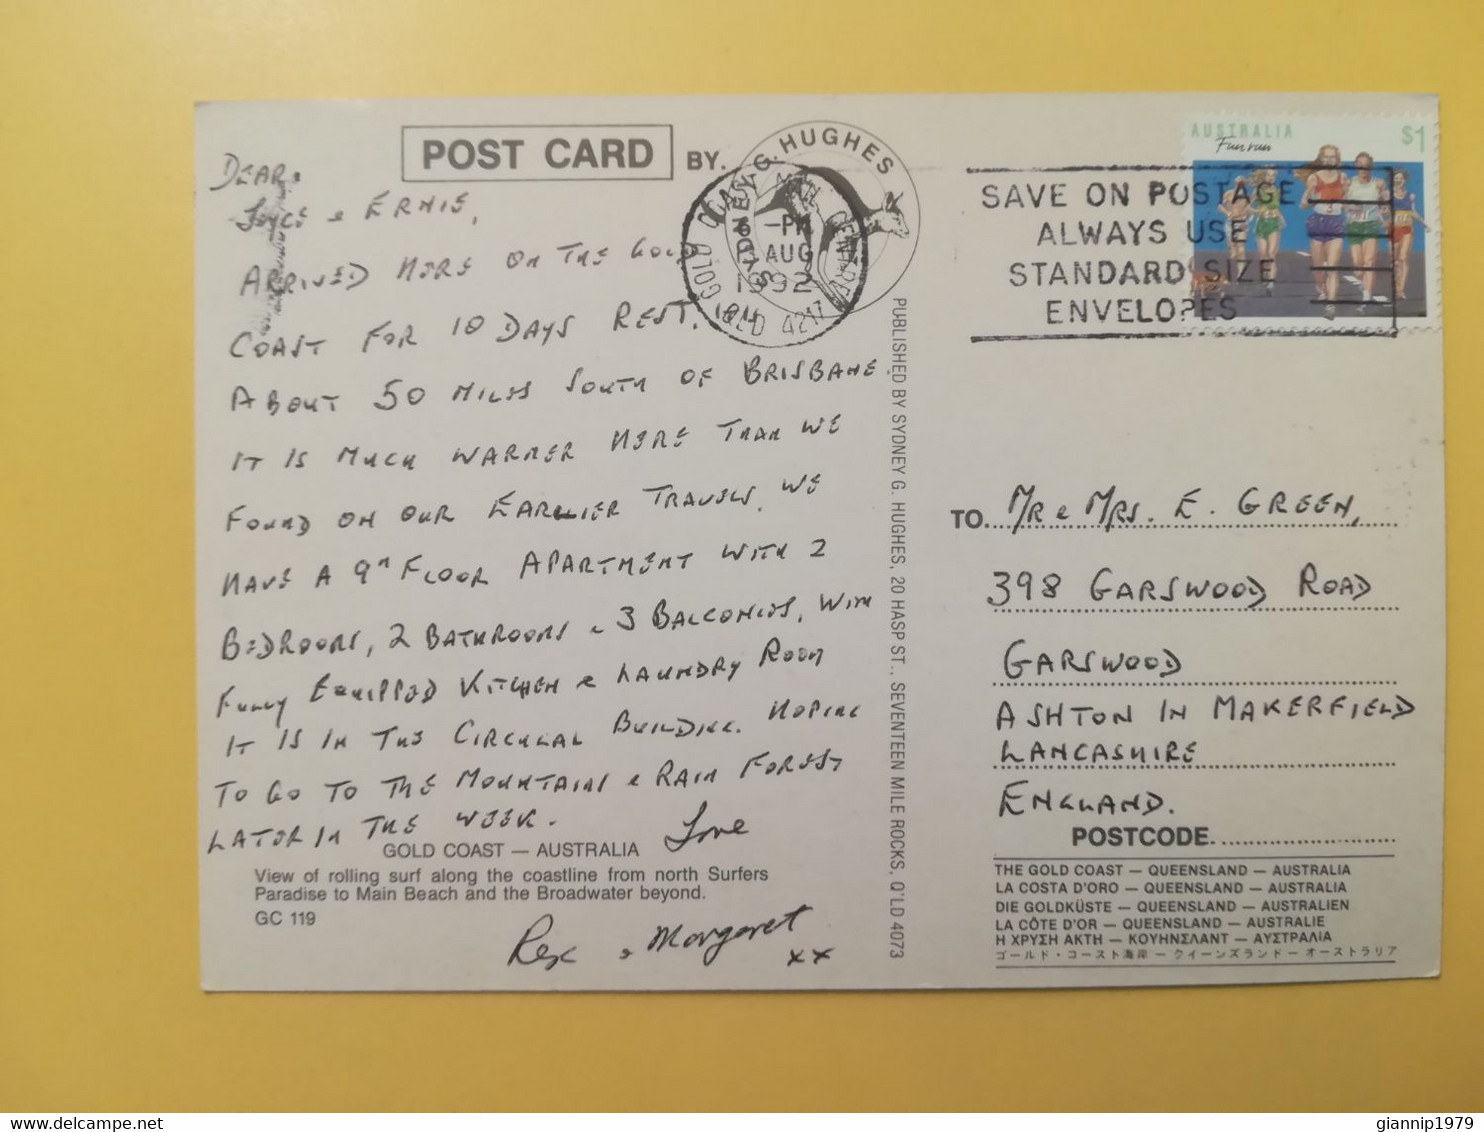 POST CARD
BY.
SYDNEY G. HUGHES
GOLD COAST MAIL CENTRE
6 -PM
AUG
1992
QLD 4217
SAVE ON POSTAGE
ALWAYS USE
STANDARD SIZE
ENVELOPES
AUSTRALIA $1
Fun run
DEAR
JOYCE & ERNIE,
ARRIVED HERE ON THE GOLD
COAST FOR 10 DAYS REST,
ABOUT 50 MILES SOUTH OF BRISBANE.
IT IS MUCH WARMER HERE THAN WE
FOUND ON OUR EARLIER TRAVELS. WE
HAVE A 9TH FLOOR APARTMENT WITH 2
BEDROOMS, 2 BATHROOMS & 3 BALCONIES, WITH
FULLY EQUIPPED KITCHEN & LAUNDRY ROOM
IT IS IN THE CIRCULAR BUILDING. HOPING
TO GO TO THE MOUNTAINS & RAIN FOREST
LATER IN THE WEEK.
Love
Rex & Margaret
xx
GOLD COAST — AUSTRALIA
View of rolling surf along the coastline from north Surfers
Paradise to Main Beach and the Broadwater beyond.
GC 119
PUBLISHED BY SYDNEY G. HUGHES, 20 HASP ST., SEVENTEEN MILE ROCKS, Q'LD 4073
TO. MR & MRS. E. GREEN,
398 GARSWOOD ROAD
GARSWOOD
ASHTON IN MAKERFIELD
LANCASHIRE
ENGLAND.
POSTCODE
THE GOLD COAST — QUEENSLAND — AUSTRALIA
LA COSTA D'ORO — QUEENSLAND — AUSTRALIA
DIE GOLDKÜSTE — QUEENSLAND — AUSTRALIEN
LA CÔTE D'OR — QUEENSLAND — AUSTRALIE
Η ΧΡΥΣΗ ΑΚΤΗ — ΚΟΥΗΝΣΛΑΝΤ — ΑΥΣΤΡΑΛΙΑ
ゴールド・コースト海岸 — クイーンズランドー オーストラリア
giannip1979